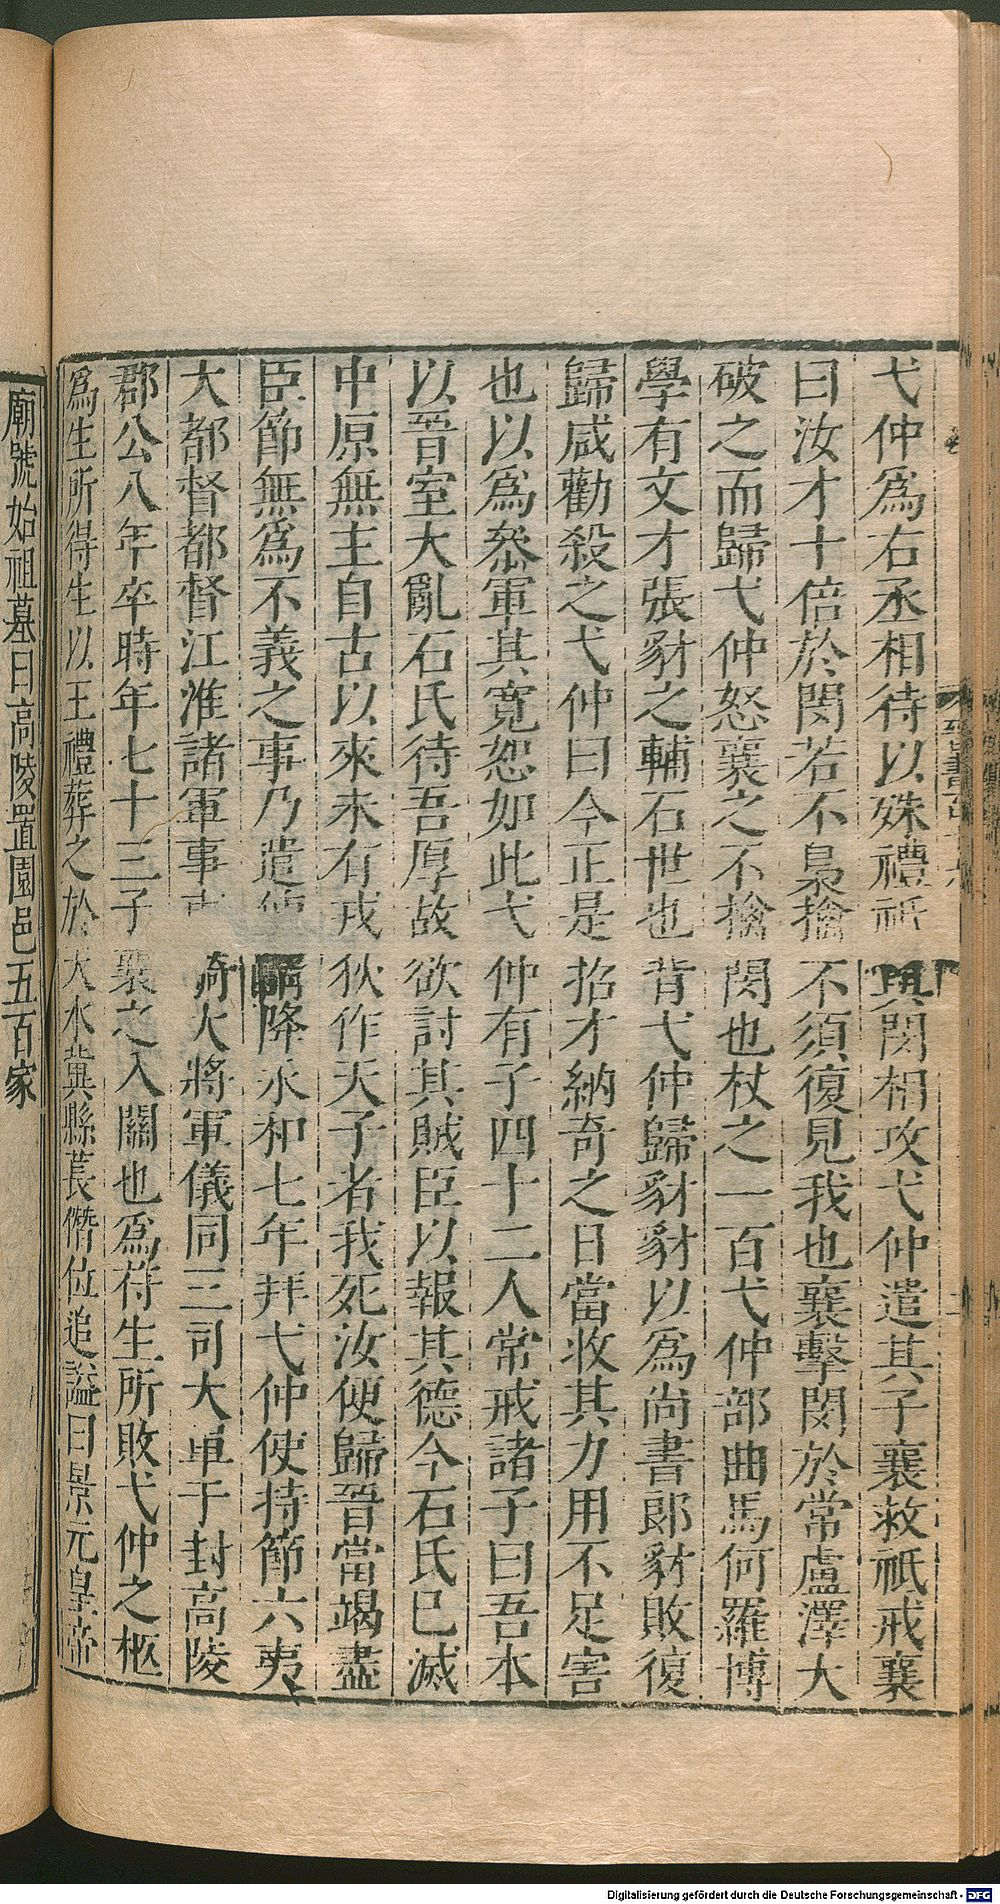 弋仲爲右丞相待以殊禮祇與閔相攻弋仲遣其子襄救祇戒襄
曰汝才十倍於閔若不梟擒不須復見我也襄擊閔於常盧澤大
破之而歸弋仲怒襄之不擒閔也杖之一百弋仲部曲馬何羅博
學有文才張豺之輔石世也背弋仲歸豺豺以爲尚書郎豺敗復
歸咸勸殺之弋仲曰今正是招才納奇之日當收其力用不足害
也以爲叅軍其寛恕如此弋仲有子四十二人常戒諸子曰吾本
以晉室大亂石氏待吾厚故欲討其賊臣以報其德今石氏已滅
中原無主自古以來未有戎狄作天子者我死汝便歸晉當竭盡
臣節無爲不義之事乃遣使請降永和七年拜弋仲使持節六夷
大都督都督江淮諸軍事騎大將軍儀同三司大單于封高陵
郡公八年卒時年七十三子襄之入關也爲苻生所敗弋仲之柩
爲生所得生以王禮葬之於大水冀縣萇僭位追謚曰景元皇帝
廟號始祖墓曰高陵置園邑五百家
Digitalisierung gefördert durch die Deutsche Forschungsgemeinschaft - DFG